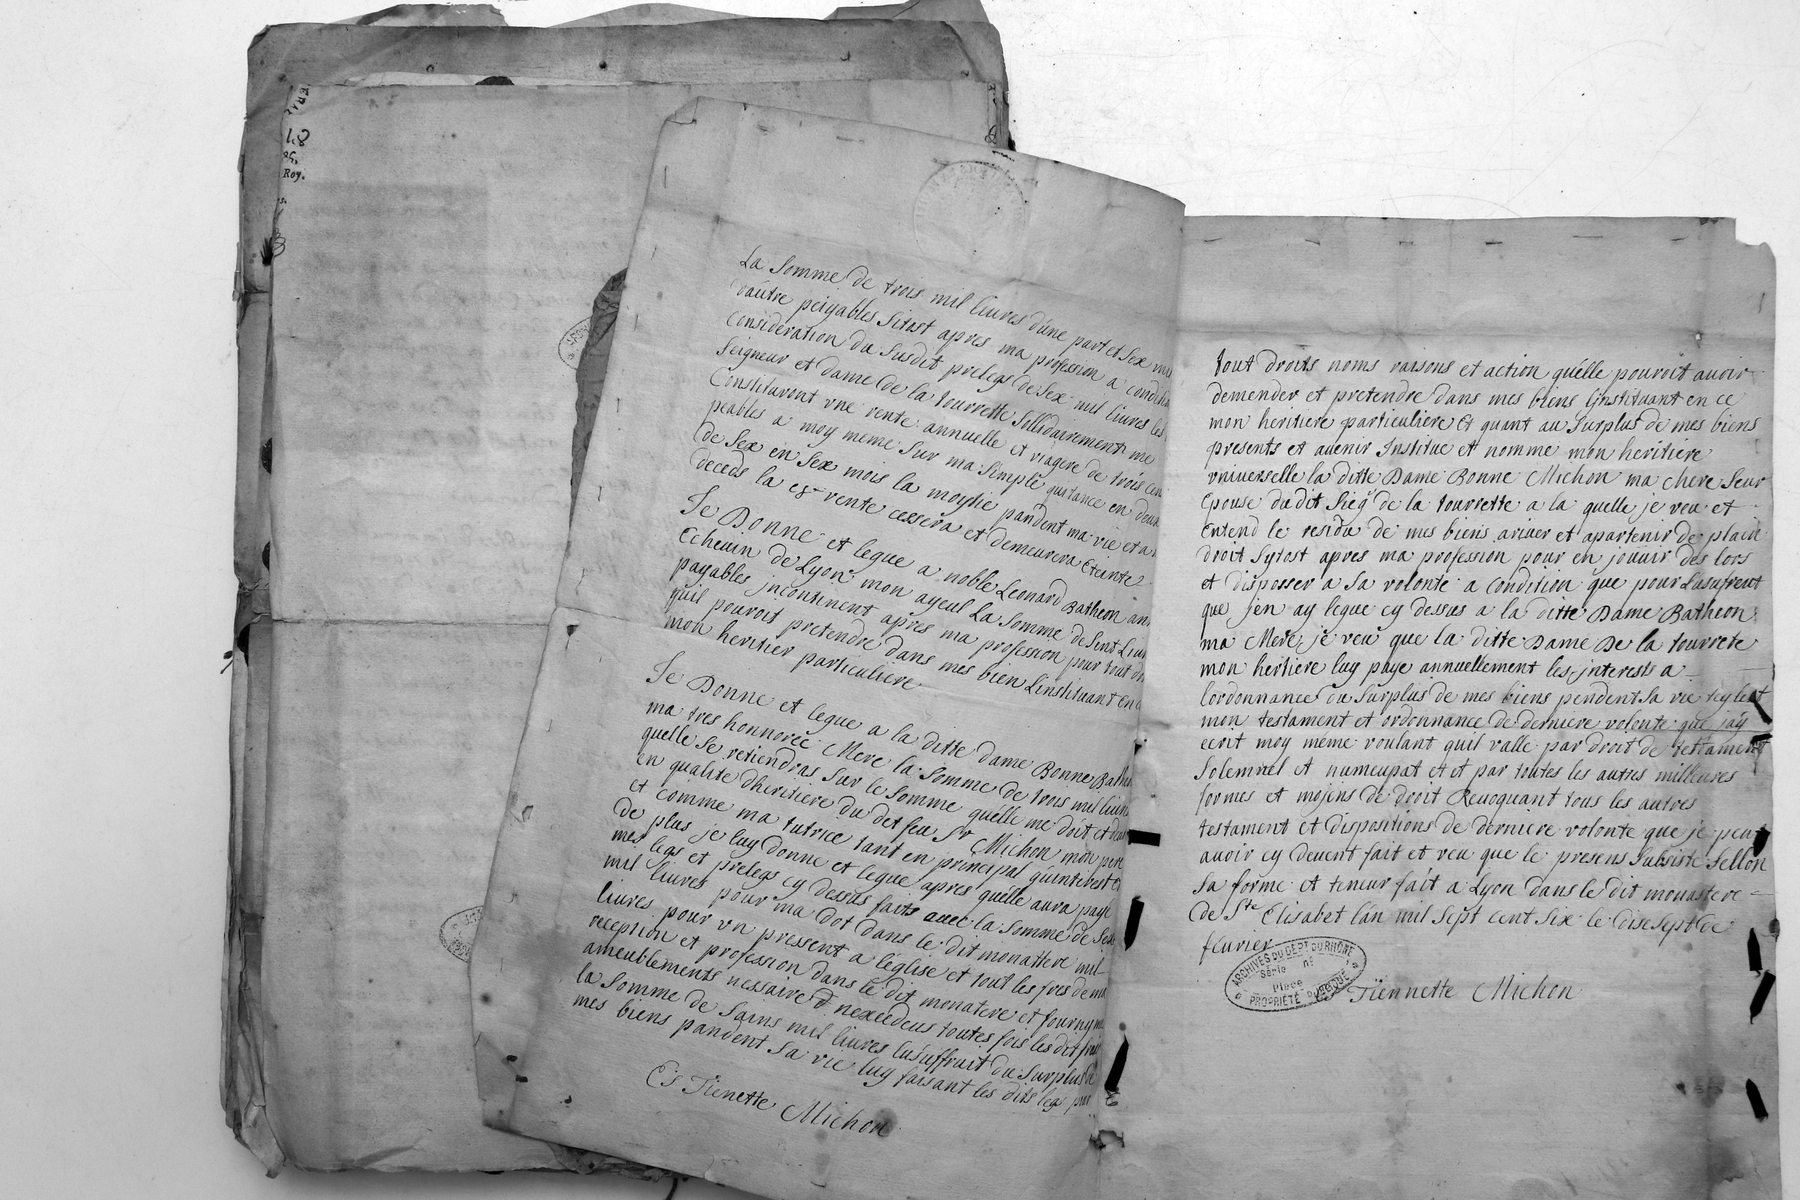 La Somme de trois mil livres d'une part et Sex
d'autre peiyables Sitost apres ma profession a
Consideration du Susdit prelegs de Sex mil livres les
Seigneur et dame de la tourrette Sollidairement me
Constitueront vne rente annuelle et viagere de trois cen
peables a moy meme Sur ma Simple quitance en deux
de Sex en Sex mois la moythie pandent ma vie et a
deceds la rente cessera et demeurera Eteinte
Je Donne et legue a noble Leonard Batheon an
Echeuin de Lyon mon ayeul La Somme de Sent
payables jncontinent apres ma profession pour tout
quil pouroit pretendre dans mes bien Linstituant en
mon heritier particuliere
Je Donne et legue a la ditte dame Bonne
ma tres honnoreé Mere la Somme de trois mil
quelle Se retiendras Sur le Somme quélle me dóit et
en qualite dheritiere du det feu Sr Michon mon
et comme ma tutrice tant en principal qu'interest
De plus je luy donne et legue apres quélle aura paye
mes legs et prelegs cy dessus faits auec la Somme de
mil livres pour ma dot dans le dit monastere mil
livres pour vn pressent a léglise et tout les
reception et profession dans le dit monatere et
ameublements nessaire nexcedens toutes fois les dit
la Somme de mil livres lusuffruit du Surplus
mes biens pandent Sa vie luy faisant les dits legs
Tienette Michon
tout droits noms raisons et action quélle pouroit auoir
demender et pretendre dans mes biens Linstituant en ce
mon heritiere particuliere Et quant au Surplus de mes biens
presents et auenir Institue et nomme mon heritiere
vniuerselle la ditte Dame Bonne Michon ma chere Seur
Epouse du dit de la tourrette a la quelle je veu et
Entend le residu de mes biens ariuer et apartenir de plain
droit Sytost apres ma profession pour en jouuir des lors
et disposser a Sa volonte a Condition que pour
que jen ay legue cy dessus a la ditte Dame Batheon
ma Mere je veu que la ditte Dame De la tourrete
mon heritiere luy paye annuellement les jnterests a
lordonnance du Surplus de mes biens pendent Sa vie
mon testament et ordonnance de derniere volonte que jáy
ecrit moy même voulant quil valle par droit de testament
Solemnel et numcupat et et par toutes les autres milleures
formes et mojens de droit Reuoquant tous les autres
testament et dispositions de derniere volonte que je peut
auoir cy deuent fait et veu que le presens Subsiste Sellon
Sa forme et teneur fait a Lyon dans le dit monastere
de Ste Elisabet lán mil Sept cent Six le diseSept de
feurier
ARCHIVES DU DÉPT DU RHÔNE
Série nº
Pièce
PROPRIÉTÉ PUBLIQUE
Tïennette Michon
Roy.